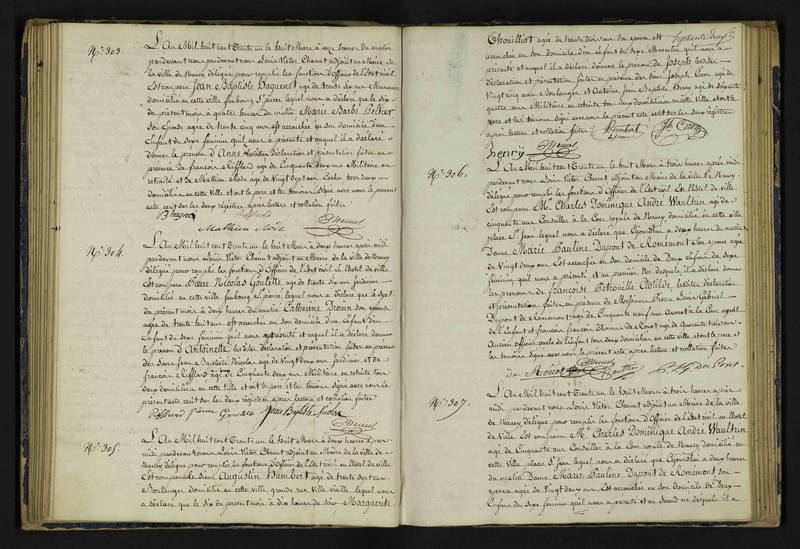 N.° 303.
L'An Mil huit cent Trente un le huit Mars à onze heures du matin
pardevant nous Louis Victor Chenut adjoint au Maire de
la Ville de Nancy, délégué pour remplir les fonctions d'officier de l'Etat Civil
Est comparu Jean Baptiste Baguenet agé de trente six ans
domicilié en cette ville faubourg St pierre lequel nous a déclaré que le six
du présent mois à quatre heures du matin Marie Barbe
son épouse agée de trente cinq ans est accouchée en son domicile d'un
Enfant du sexe féminin qu'il nous a présenté et auquel il a déclaré
donner le prénom d'Anne lesdites déclaration et présentation faites en
présence de françois Riffard agé de Cinquante deux ans Militaire en
retraite et de Mathieu Noël agé de Vingt six ans tous deux
domiciliés en cette Ville et ont le père et les témoins signé avec nous le présent
acte écrit sur les deux registres après lecture et collation faites
Mathieu Noël
N.° 304.
L'An Mil huit cent Trente un le huit Mars à deux heures après midi
pardevant nous Louis Victor Chenut adjoint au Maire de la ville de Nancy
délégué pour remplir les fonctions d'officier de l'Etat civil En l'hotel de ville
Est comparu Pierre Nicolas Goulette agé de trente six ans Jardinier
domicilié en cette ville faubourg St pierre lequel nous a déclaré que le sept
du présent mois à deux heures du matin Catherine son épouse
agée de trente huit ans est accouchée en son domicile d'un
Enfant du sexe féminin qu'il nous a présenté et auquel il a déclaré donner
le prénom d'Antoinette lesdites déclaration et présentation faites en présence
des Sieurs Jean Baptiste Nicolas agé de vingt deux ans Jardinier et de
françois Riffard agé de Cinquante deux ans Militaire en retraite tous
deux domiciliés en cette ville et ont le père et les témoins signé avec nous le
présent acte écrit sur les deux registres après lecture et collation faites
Riffard pierre Goulette Jean Baptiste
N.° 305.
L'An Mil huit cent Trente un le huit Mars à deux heures après
midi pardevant nous Louis Victor Chenut adjoint au Maire de la ville de
Nancy délégué pour remplir les fonctions d'officier de l'Etat civil En l'hotel de ville
Est comparu le Sieur Augustin Humbert agé de trente sept ans
Boulanger domicilié en cette ville grande rue Ville vieille lequel nous
a déclaré que le six du présent mois à dix heures du soir Marguerite
Thouillot agée de trente trois ans son épouse est
accouchée en son domicile d'un Enfant du sexe Masculin qu'il nous a
présenté et auquel il a déclaré donner le prénom de Joseph lesdites
déclaration et présentation faites en présence des Sieurs Joseph agé de
vingt cinq ans Boulanger et Antoine Jean Baptiste Henry agé de soixante
quatre ans Militaire en retraite tous deux domiciliés en cette Ville et ont le
père et les témoins signé avec nous le présent acte écrit sur les deux registres
après lecture et collation faites
Humbert
henry
N.° 306.
L'An Mil huit cent Trente un le huit Mars à trois heures après midi
pardevant nous Louis Victor Chenut adjoint au Maire de la Ville de Nancy
délégué pour remplir les fonctions d'officier de l'Etat civil En l'Hotel de ville
Est comparu M. Charles Dominique André Waultrin agé de
cinquante ans Conseiller à la Cour royale de Nancy domicilié en cette ville
place St Jean lequel nous a déclaré que Cejourd'hui à deux heures du matin
Dame Marie Pauline Dupont de Romémont son épouse agée
de Vingt deux ans Est accouchée en son domicile de Deux Enfans du sexe
féminin qu'il nous a présenté et au premier né desquels il a déclaré donner
les prénoms de Françoise Pétronille Clotilde lesdites déclaration
et présentation faites en présence de Monsieur Pierre Louis Gabriel
Dupont de Romémont agé de Cinquante neuf ans Avocat à la Cour ayeul
de l'Enfant et françois françois Etienne de Rouot agé de Quarante trois ans
Ancien officier oncle de l'Enfant tous deux domiciliés en cette ville et ont le père et
les témoins signé avec nous le présent acte après lecture et collation faites
N.° 307.
L'An Mil huit cent Trente un le huit Mars à trois heures après
midi pardevant nous Louis Victor Chenut adjoint au Maire de la Ville
de Nancy, délégué pour remplir les fonctions d'officier de l'Etat civil en l'hotel
de Ville Est comparu M. Charles Dominique André Waultrin
agé de Cinquante ans Conseiller à la Cour royale de Nancy domicilié en
cette Ville place St Jean lequel nous a déclaré que Cejourd'hui à deux heures
du matin Dame Marie Pauline Dupont de Romémont son
épouse agée de Vingt deux ans Est accouchée en son domicile de Deux
Enfans du sexe féminin qu'il nous a présenté et au second né desquels il a